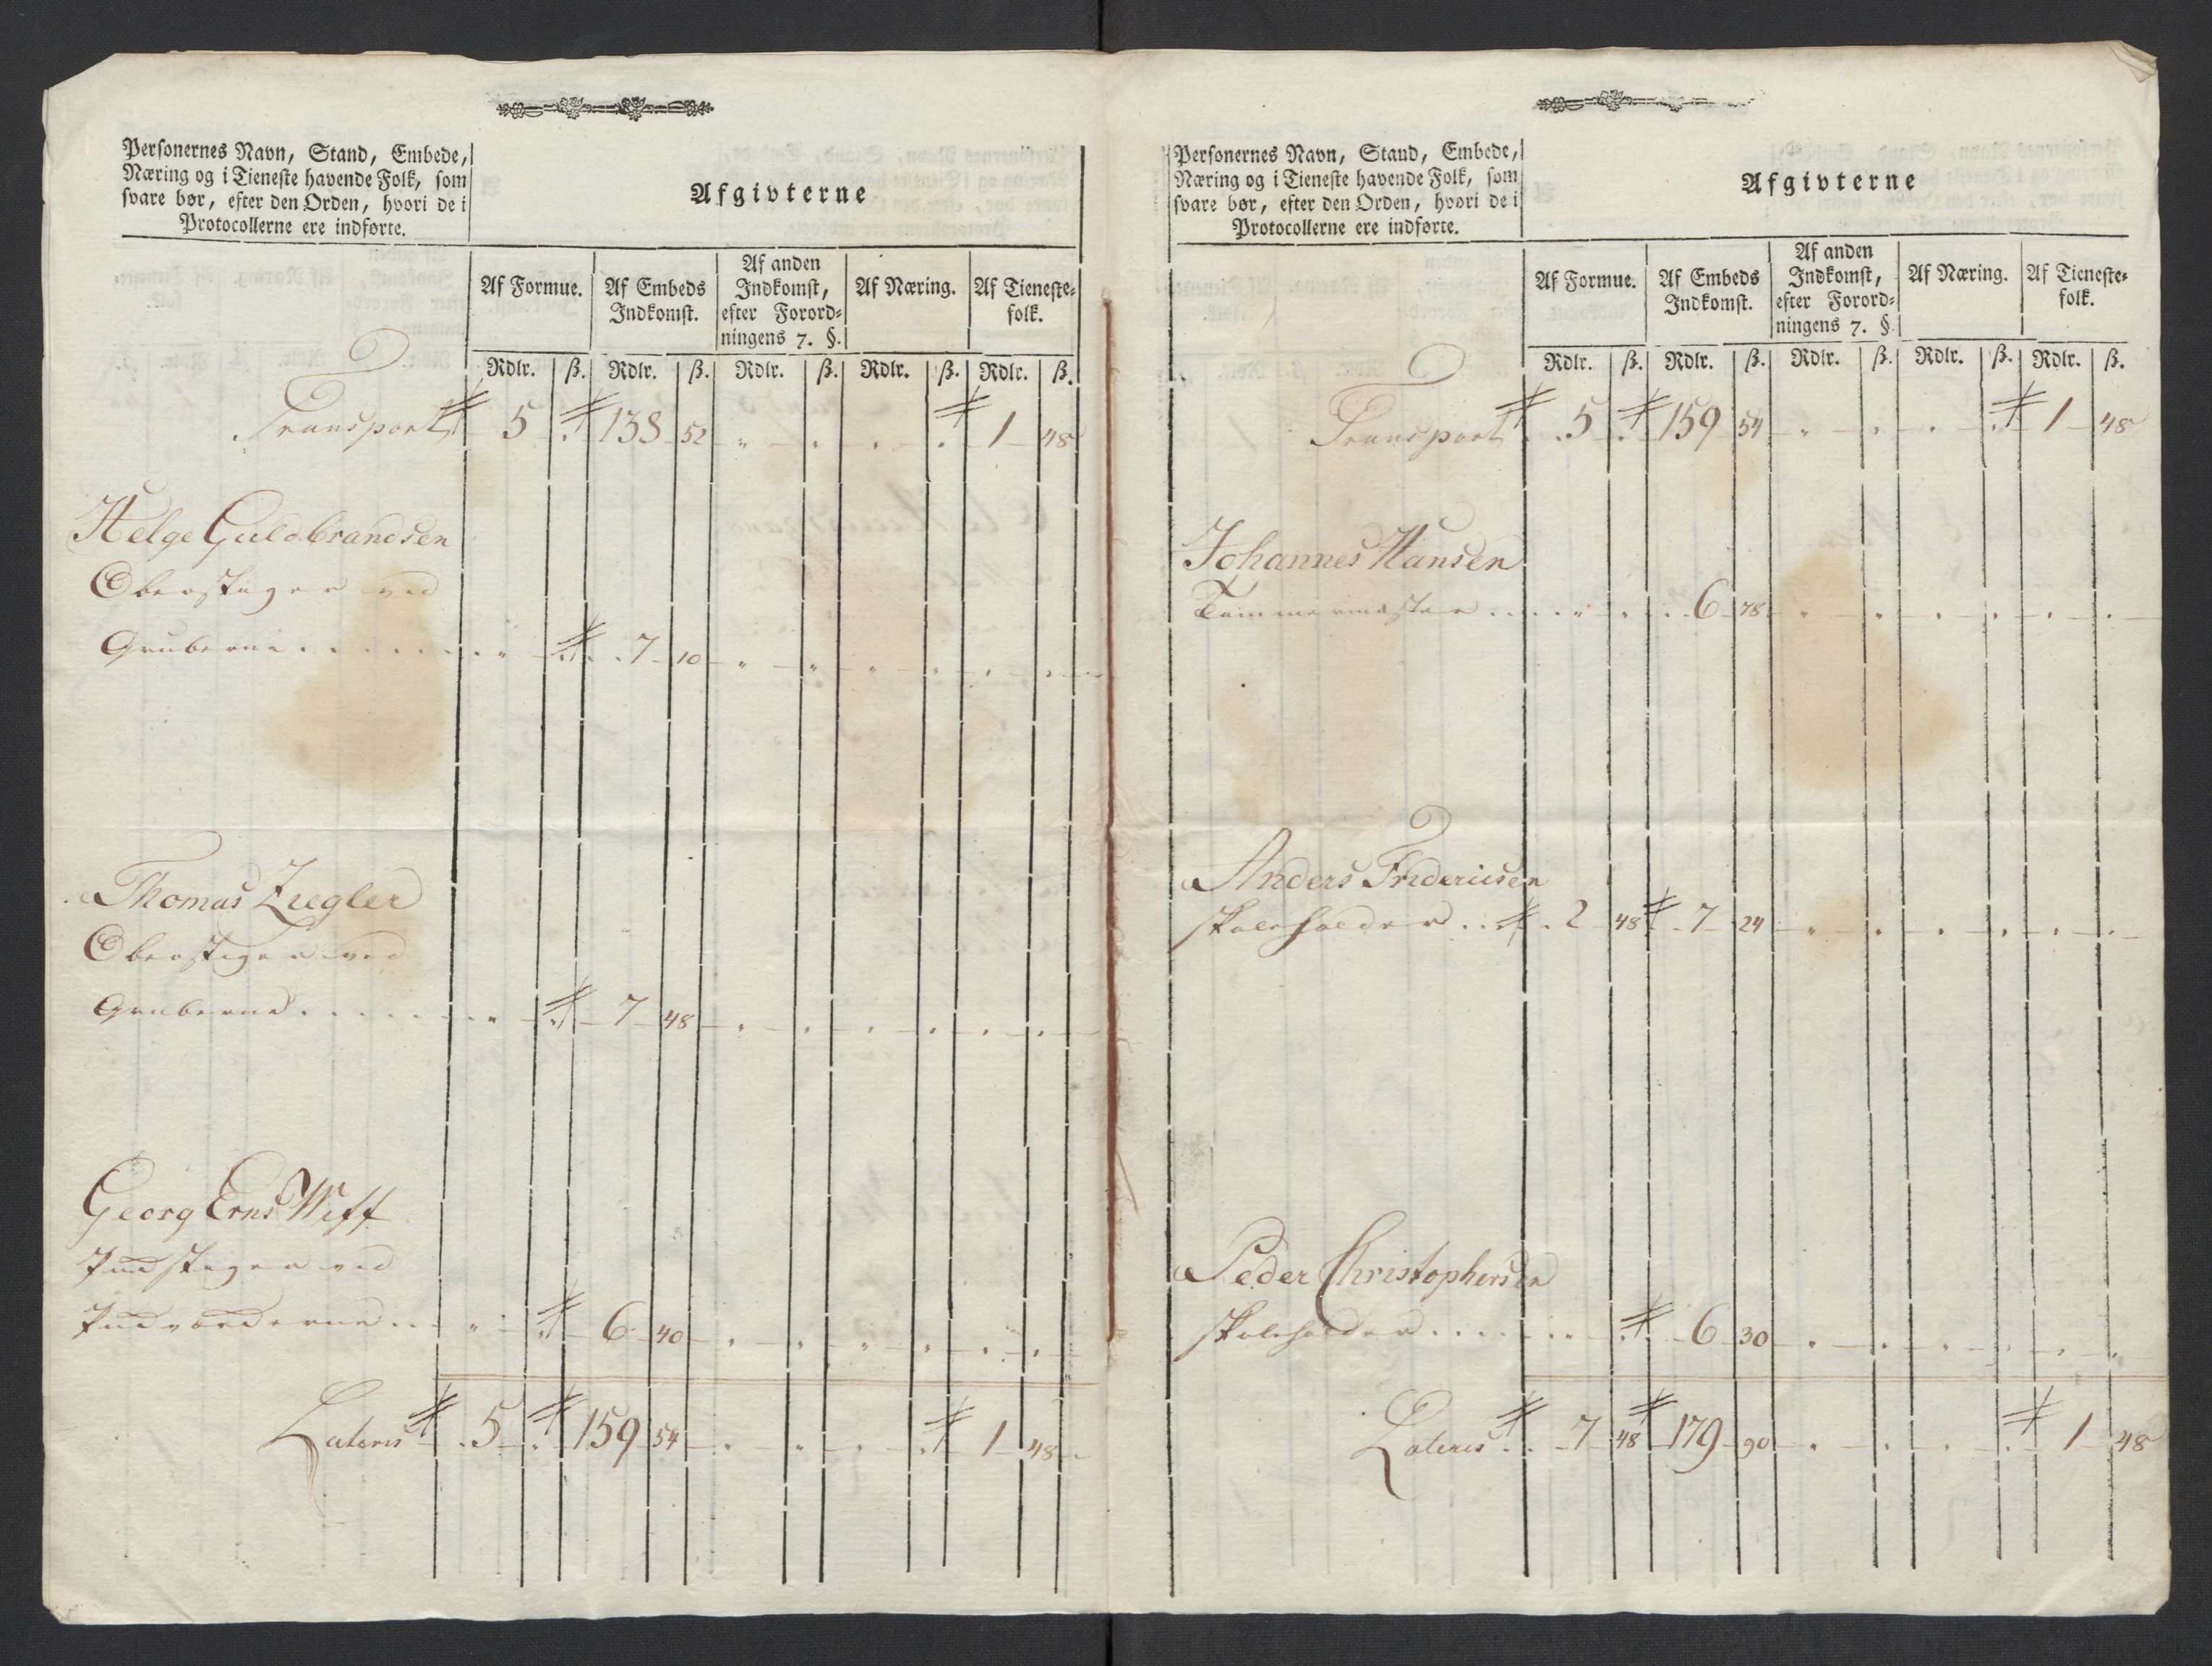 Personernes Navn, Stand, Embede,
Næring og i Tieneste havende Folk, som
svare bør, efter den Orden, hvori de i
Protocollerne ere indførte.
Afgivterne
Af Formue.
Af Embeds
Indkomst.
Af anden
Indkomst,
efter Forord-
ningens 7. §.
Af Næring.
Af Tieneste-
folk.
Rdlr. ß. Rdlr. ß. Rdlr. ß. Rdlr. ß. Rdlr. ß.
Transport 5 138 52 1 48
Helge Guldbrandsen
Oberstiger ved
Gruberne 7 10
Thomas Ziegler
Oberstiger ved
Gruberne 7 48
Georg Erns Wiff
stiger ved
6 40
Lateris 5 159 54 1 48
Personernes Navn, Stand, Embede,
Næring og i Tieneste havende Folk, som
svare bør, efter den Orden, hvori de i
Protocollerne ere indførte.
Afgivterne
Af Formue.
Af Embeds
Indkomst.
Af anden
Indkomst,
efter Forord-
ningens 7. §.
Af Næring.
Af Tieneste-
folk.
Rdlr. ß. Rdlr. ß. Rdlr. ß. Rdlr. ß. Rdlr. ß.
Transport 5 159 54 1 48
Johannes Hansen
Tømmermæster 6 78
Anders Fridericsen
Skoleholder 2 48 7 24
Peder Christophersen
Skoleholder 6 30
Lateris 7 48 179 90 1 48